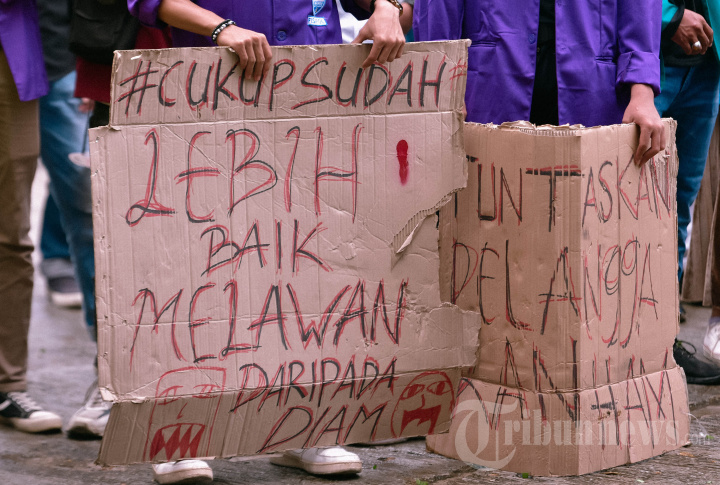 #CUKUPSUDAH
LEBIH
BAIK
MELAWAN
DARIPADA
DIAM
TUNTASKAN
PELANGGA
NAN HAM
Tribunnews